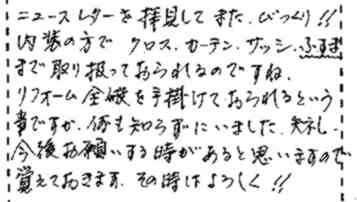 ニュースレターを拝見して また、びっくり!!
内装の方で クロス、カーテン、サッシ、ふすま
まで取り扱っておられるのですね。
リフォーム全破を手掛けておられるという
事ですか、何も知らずにいました。
今後お願いする時があると思いますので
覚えておきます、その時はよろしく!!